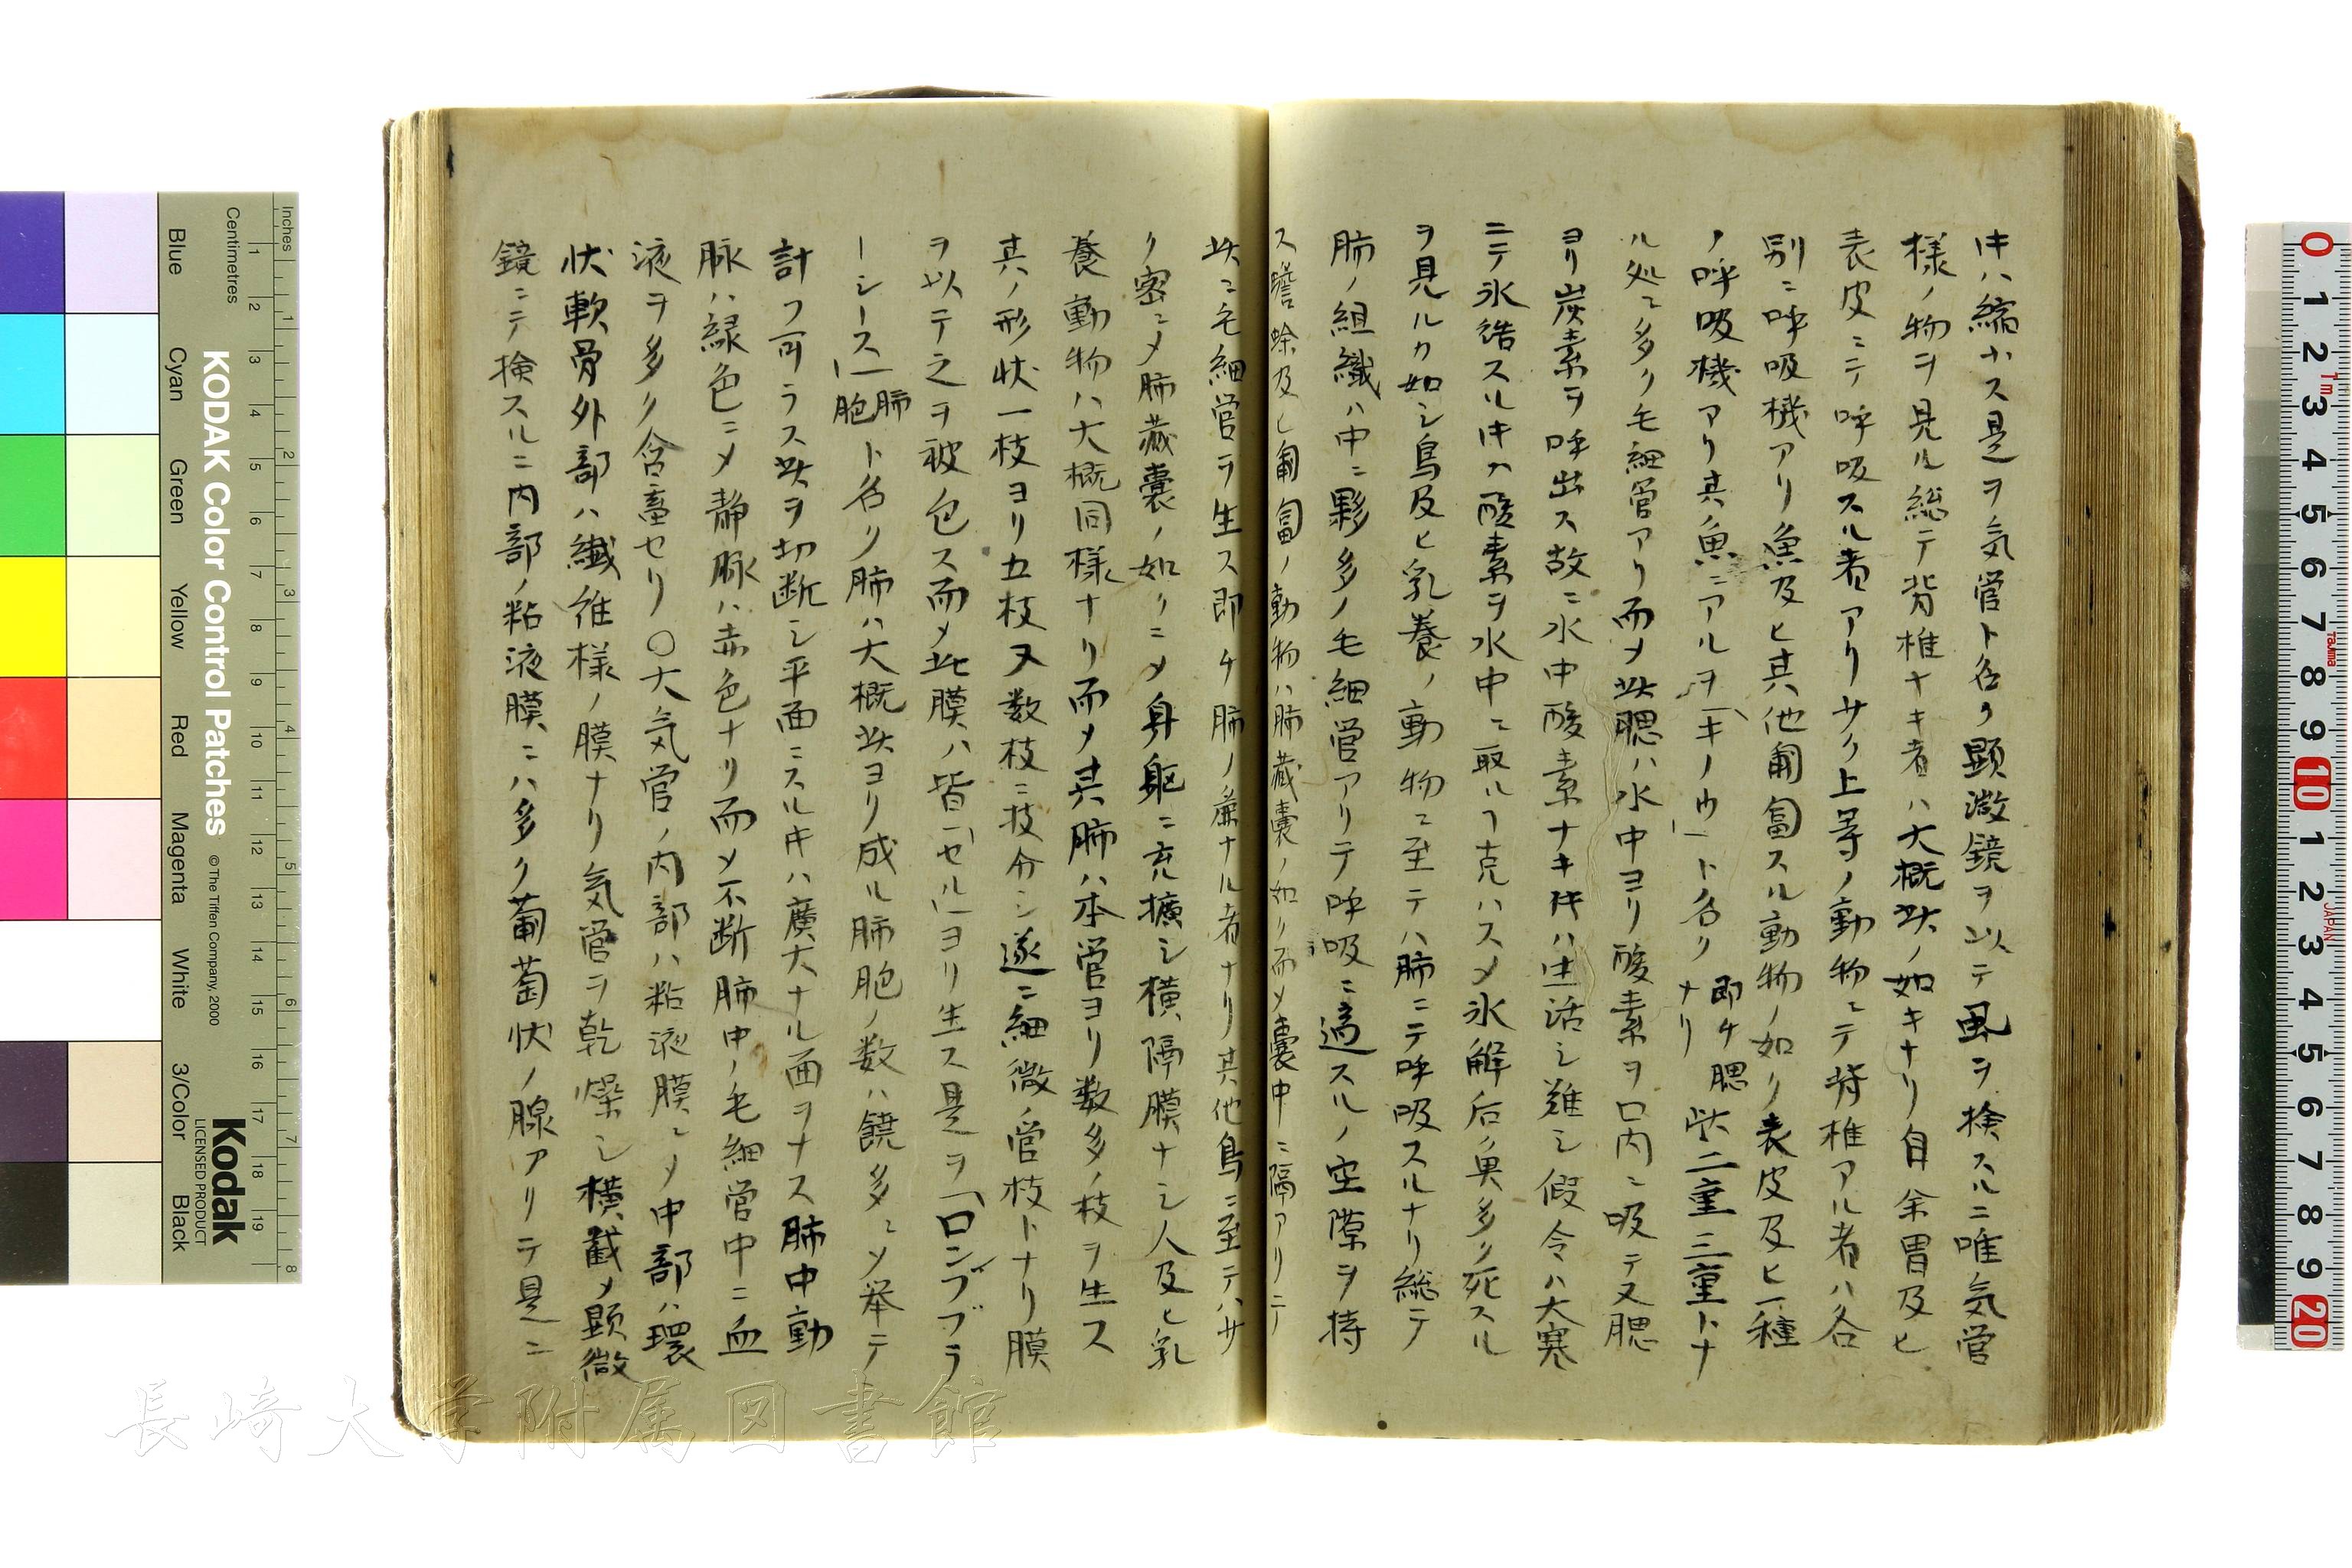 キハ縮小ス是ヲ気管ト名ク顕微鏡ヲ以テ風ヲ検スルニ唯気管
様ノ物ヲ見ル総テ脊椎ナキ者ハ大概此ノ如キナリ自余胃及ヒ
表皮ニテ呼吸スル者アリサク上等ノ動物ニテ脊椎アル者ハ各
別ニ呼吸機アリ魚及ヒ其他匍匐スル動物ノ如ク表皮及ヒ一種
ノ呼吸機アリ其魚ニアルヲ「キーウ」ト名ク即チ腮ナリ此二重三重トナ
ル処ニ多ク毛細管アリ而メ此腮ハ水中ヨリ酸素ヲ口内ニ吸テ又腮
ヨリ炭素ヲ呼出ス故ニ水中酸素ナキ時ハ生活シ難シ假令ハ大寒
ニテ氷結スル時カ酸素ヲ水中ニ取ルヿ克ハスメ氷解后魚多ク死スル
ヲ見ルカ如シ鳥及ヒ乳養ノ動物ニ至テハ肺ニテ呼吸スルナリ総テ
肺ノ組織ハ中ニ夥多ノ毛細管アリテ呼吸ニ適スルノ空隙ヲ持
ス蟾蜍及ヒ匍匐ノ動物ハ肺蔵嚢ノ如ク而メ嚢中ニ隔アリテ
此ニ毛細管ヲ生ス即チ肺ノ麁ナル者ナリ其他鳥ニ至テハサ
ク密ニメ肺蔵嚢ノ如クニメ身躯ニ充擴シ横隔膜ナシ人及ヒ乳
養動物ハ大概同様ナリ而メ其肺ハ本管ヨリ数多ノ枝ヲ生ス
其ノ形状一枝ヨリ五枝又数枝ニ技分シ遂ニ細微ノ管枝トナリ膜
ヲ以テ之ヲ被包ス而メ此膜ハ皆「セル」ヨリ生ス是ヲ「ロンブブラ
ーシース」肺胞ト名ク肺ハ大概此ヨリ成ル肺胞ノ数ハ饒多ニメ挙テ
計フ可ラス此ヲ切断シ平面ニスル時ハ廣大ナル面ヲナス肺中動
脉ハ緑色ニメ静脉ハ赤色ナリ而メ不断肺中ノ毛細管中ニ血
液ヲ多ク含畜セリ〇大気管ノ内部ハ粘液膜ニメ中部ハ環
状軟骨外部ハ繊維様ノ膜ナリ気管ヲ乾燥シ横截メ顕微
鏡ニテ検スルニ内部ノ粘液膜ニハ多ク葡萄状ノ腺アリテ是ニ
KODAK Color Control Patches
© The Tiffen Company, 2000
Kodak
LICENSED PRODUCT
Inches
Centimetres
Blue Cyan Green Yellow Red Magenta White 3/Color Black
1 2 3 4 5 6 7 8 9 10 11 12 13 14 15 16 17 18 19
1 2 3 4 5 6 7 8
0 1 2 3 4 5 6 7 8 9 10 1 2 3 4 5 6 7 8 9 20
1m
Tajima
JAPAN
長崎大学附属図書館